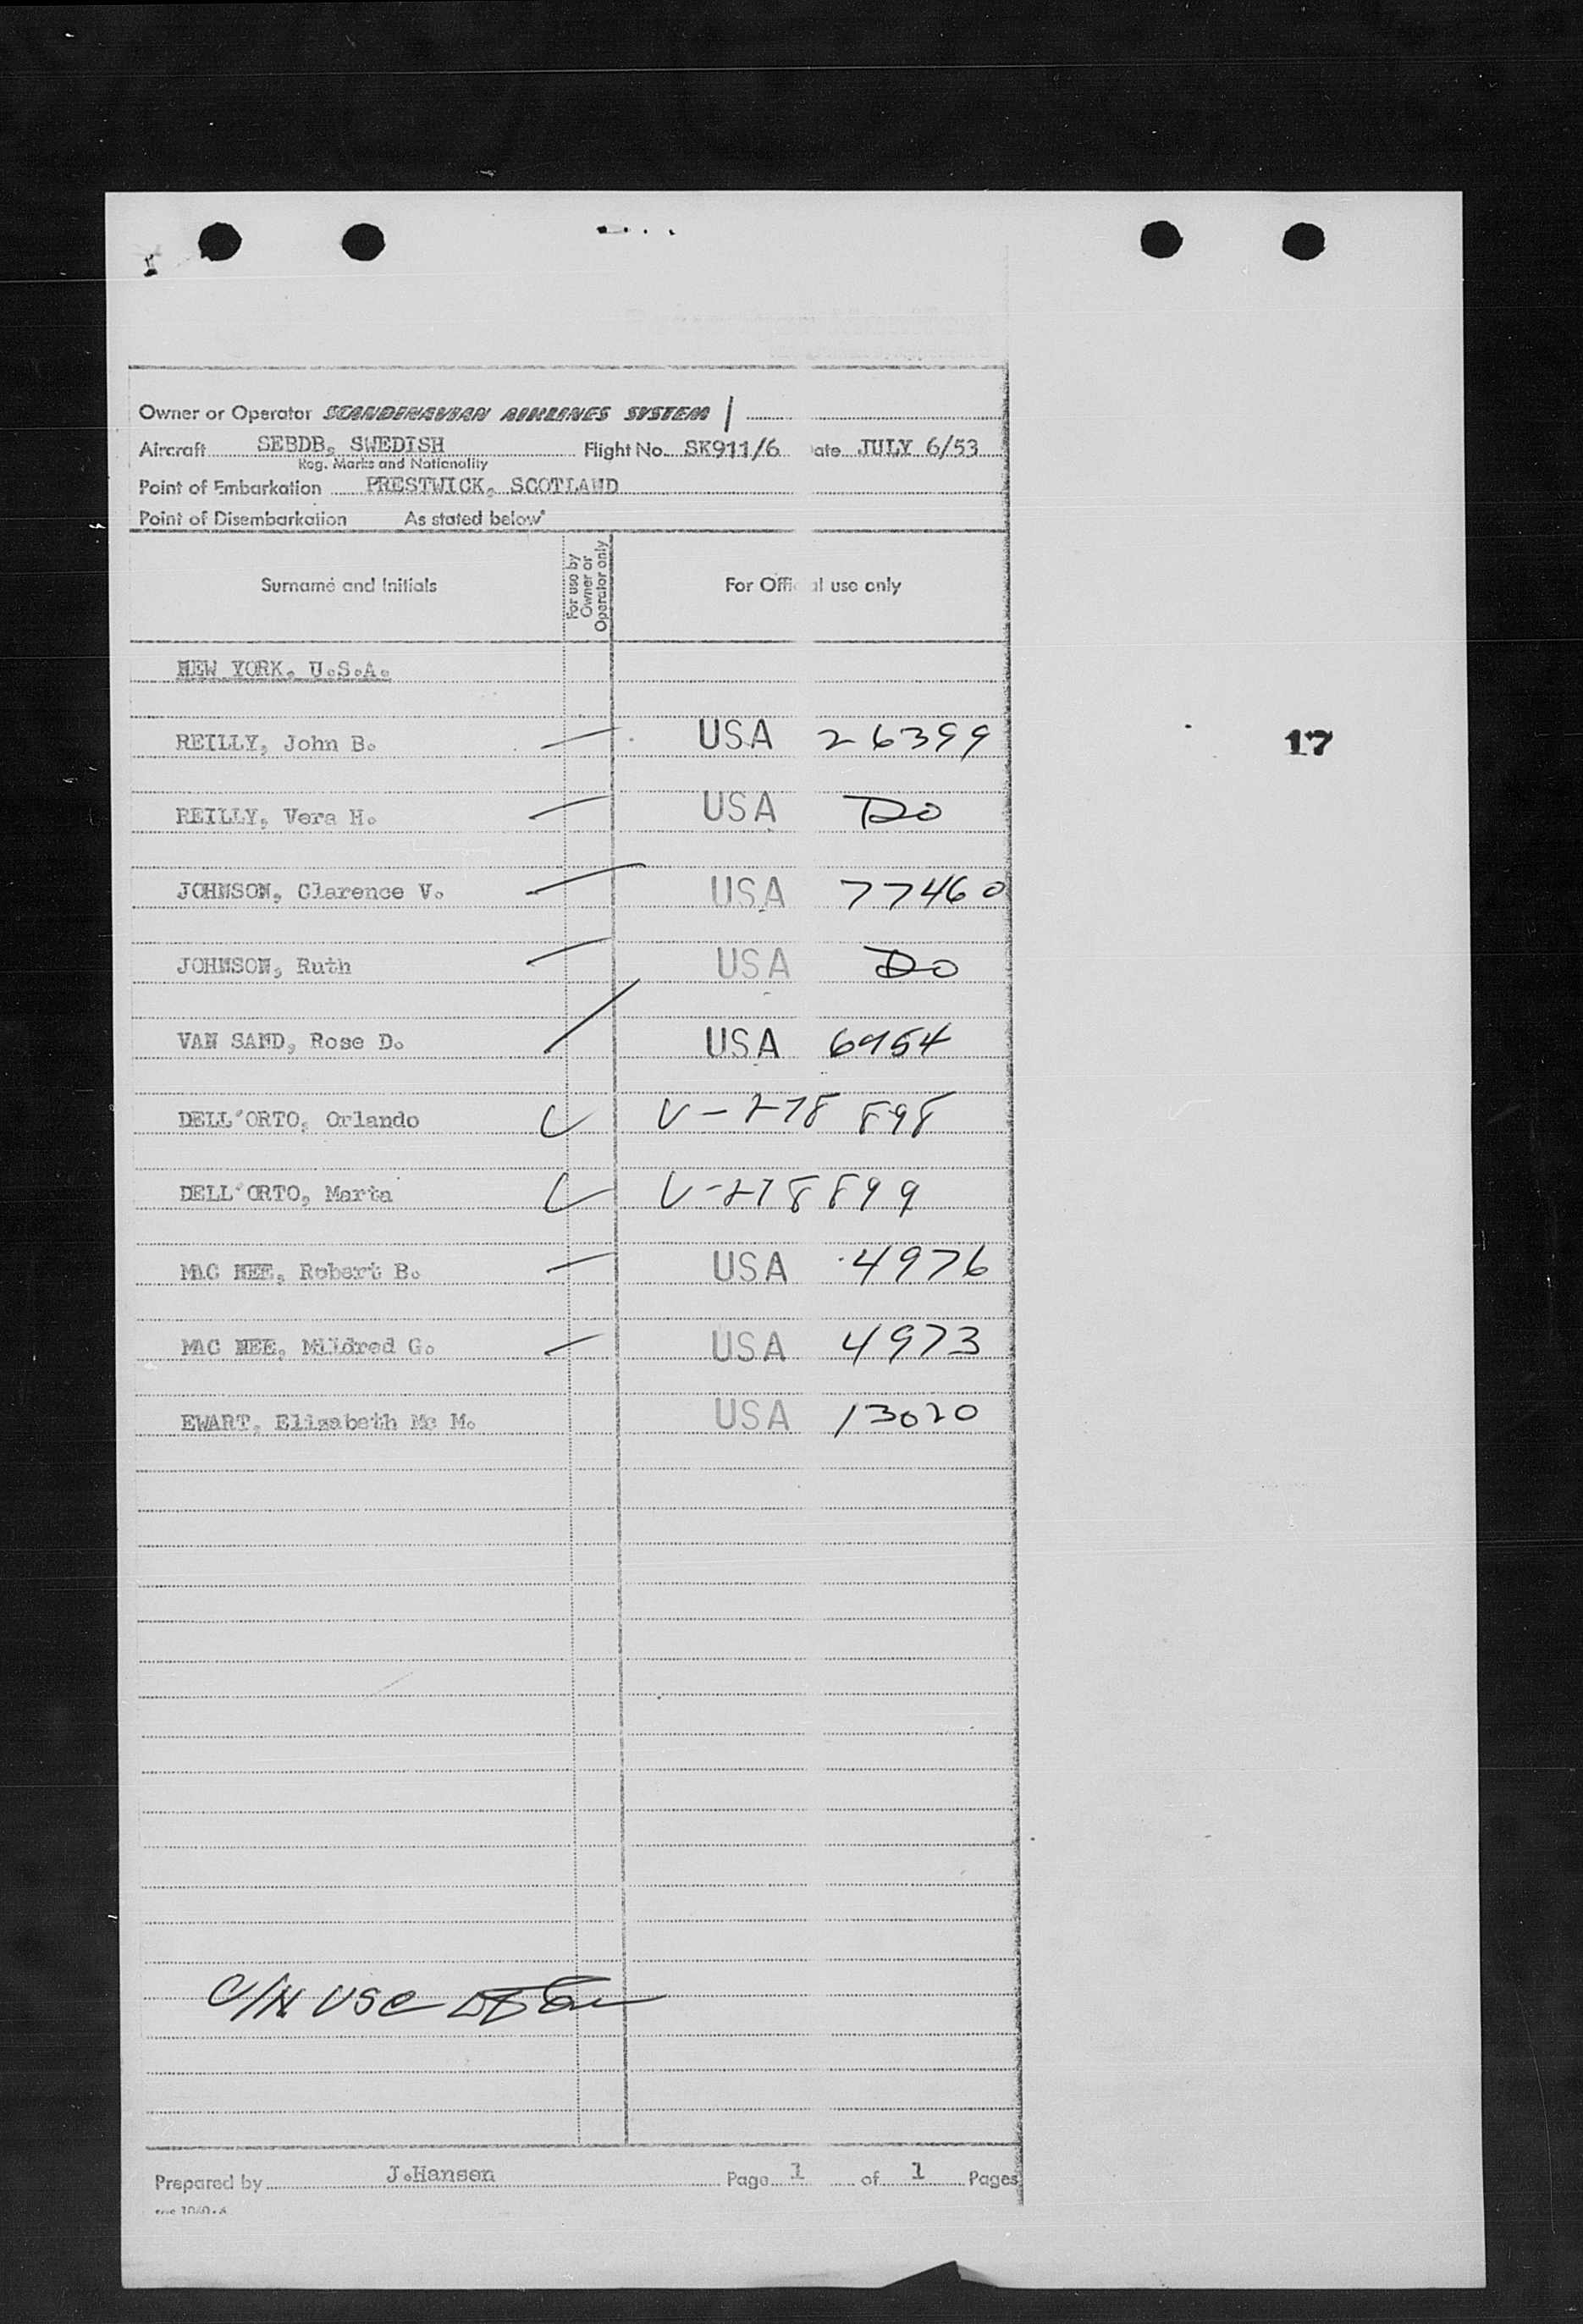 Owner or Operator SCANDINAVIAN AIRLINES SYSTEM
Aircraft SEBDB, SWEDISH Flight No. SK911/6 ate JULY 6/53
Reg. Marks and Nationality
Point of Embarkation PRESTWICK, SCOTLAND
Point of Disembarkation As stated below
Surname and Initials For use by Owner or Operator only For Offic al use only
NEW YORK, U.S.A.
REILLY, John B. USA 26399 17
REILLY, Vera H. USA Do
JOHNSON, Clarence V. USA 77460
JOHNSON, Ruth USA Do
VAN SAND, Rose D. USA 6954
DELL'ORTO, Orlando V-278 898
DELL'ORTO, Marta V-278899
MAC NEE, Robert B. USA 4976
MAC NEE, Mildred G. USA 4973
EWART, Elizabeth Mc M. USA 13020
C/N USC
Prepared by J.Hansen Page 1 of 1 Pages